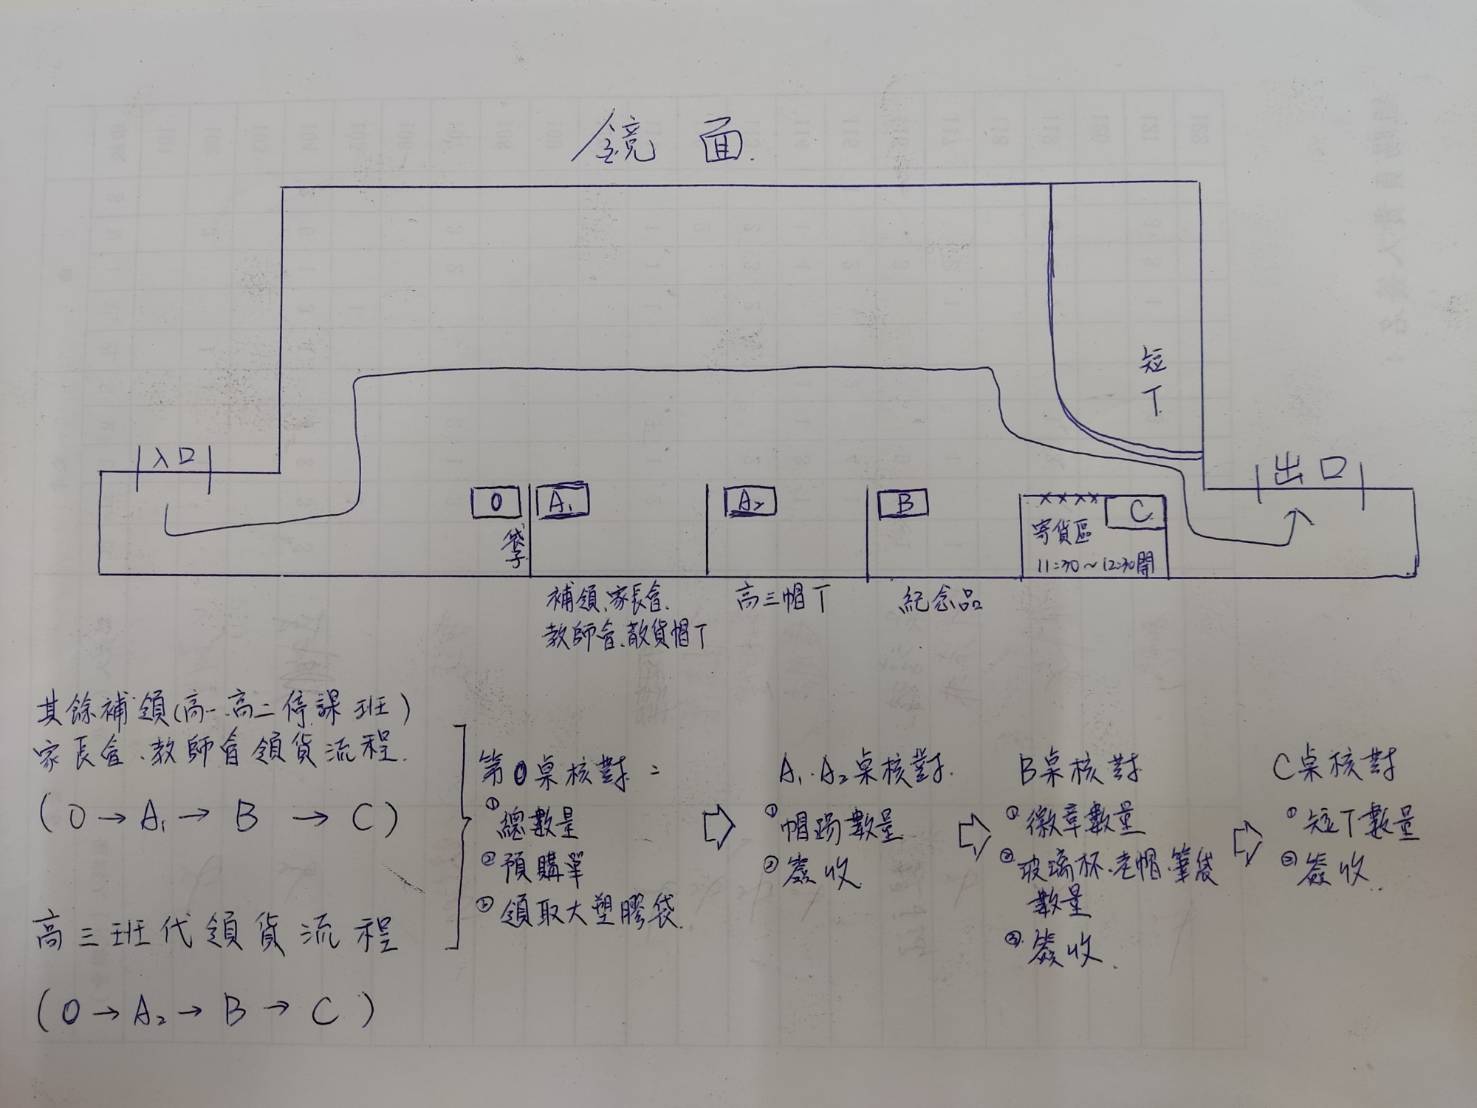 鏡面
短
T
入口
出口
O
A₁
A₂
B
C
袋子
××××
寄貨區
11:30~12:30開
補領、家長會、
教師會、散貨帽T
高三帽T
紀念品
其餘補領(高一、高二停課班)
家長會、教師會領貨流程.
(O→A₁→B→C)
高三班代領貨流程
(O→A₂→B→C)
第0桌核對:
①總數量
②預購單
③領取大塑膠袋.
A₁、A₂桌核對.
①帽踢數量
②簽收
B桌核對
①徽章數量
②玻璃杯、老帽、筆袋
數量
③簽收.
C桌核對
①短T數量
②簽收.